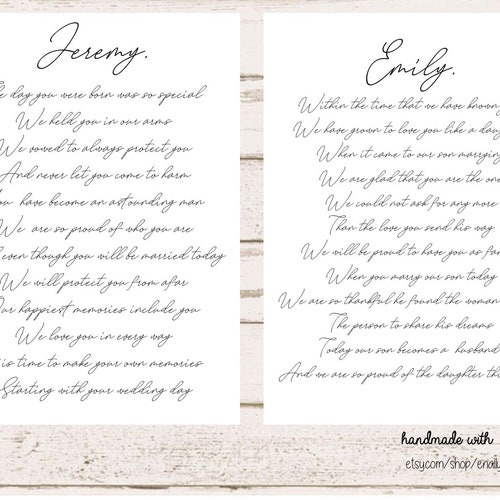 Jeremy.
e day you were born was so special
We held you in our arms
We vowed to always protect you
And never let you come to harm
ou have become an astounding man
We are so proud of who you are
even though you will be married today
We will protect you from afar
ur happiest memories include you
We love you in every way
is time to make your own memories
Starting with your wedding day
Emily.
Within the time that we have known
We have grown to love you like a daug
When it came to our son marrying
We are glad that you are the one
We could not ask for any more
Than the love you send his way
We will be proud to have you as fam
When you marry our son today
We are so thankful he found the woman
The person to share his dreams
Today our son becomes a husband
And we are so proud of the daughter th
handmade with
etsy.com/shop/enall